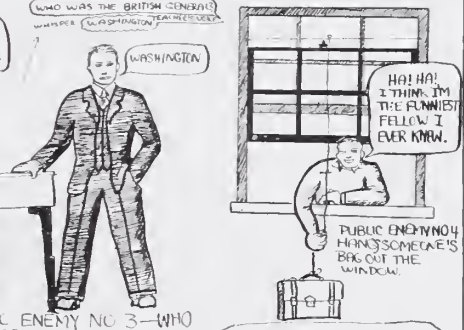 WHO WAS THE BRITISH GENERAL?
WHISPER WASHINGTON TEACHER'S
WASHINGTON
ENEMY NO 3—WHO
HA! HA!
I THINK I'M
THE FUNNIEST
FELLOW I
EVER KNEW.
PUBLIC ENEMY NO 4
HANGS SOMEONE'S
BAG OUT THE
WINDOW.